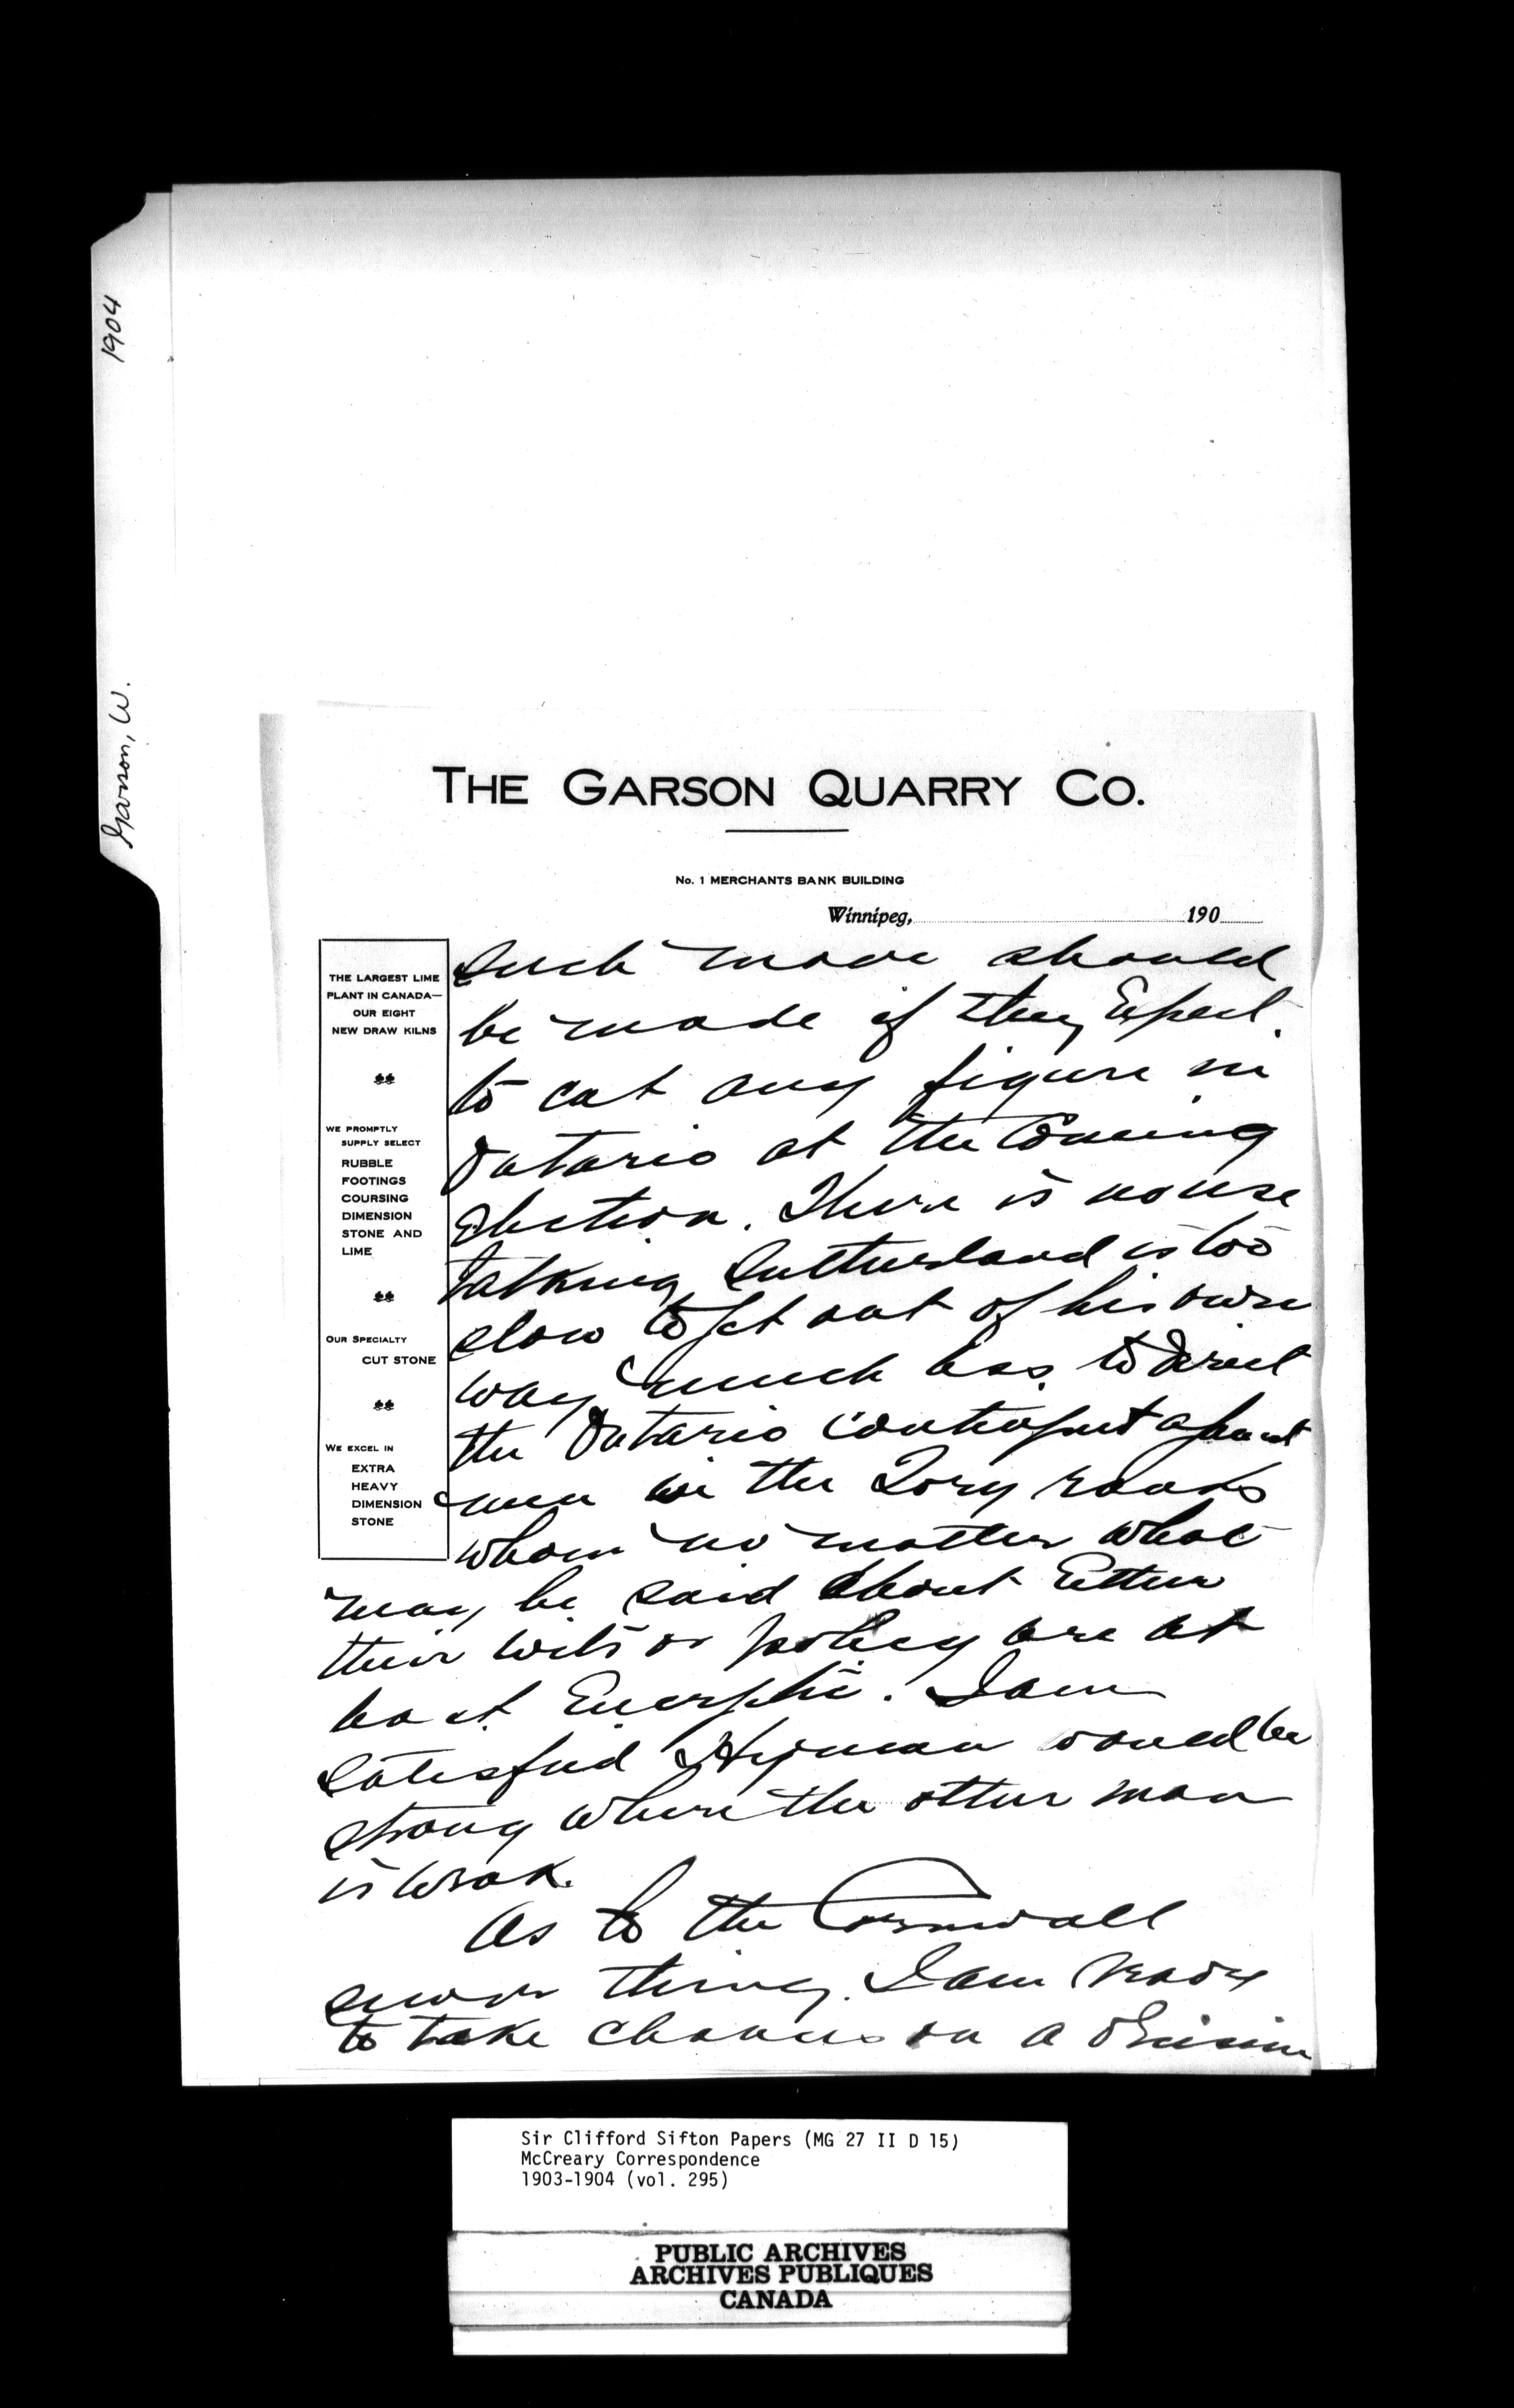 1904
Garson, W.
THE GARSON QUARRY CO.
No. 1 MERCHANTS BANK BUILDING
Winnipeg, 190
THE LARGEST LIME
PLANT IN CANADA—
OUR EIGHT
NEW DRAW KILNS
WE PROMPTLY
SUPPLY SELECT
RUBBLE
FOOTINGS
COURSING
DIMENSION
STONE AND
LIME
OUR SPECIALTY
CUT STONE
WE EXCEL IN
EXTRA
HEAVY
DIMENSION
STONE
Such move should
be made if they Expect
to cut any figure in
Ontario at the Coming
Election. There is no use
talking Sutherland is too
slow to get out of his own
way much less to direct
the Ontario contingent against
men in the Tory ranks
whom no matter what
may be said about Either
their wits or policy are at
least Energetic. I am
satisfied Hyman would be
strong where the other man
is weak.
As to the Cornwall
sewer thing. I am ready
to take chances on a
Sir Clifford Sifton Papers (MG 27 II D 15)
McCreary Correspondence
1903-1904 (vol. 295)
PUBLIC ARCHIVES
ARCHIVES PUBLIQUES
CANADA